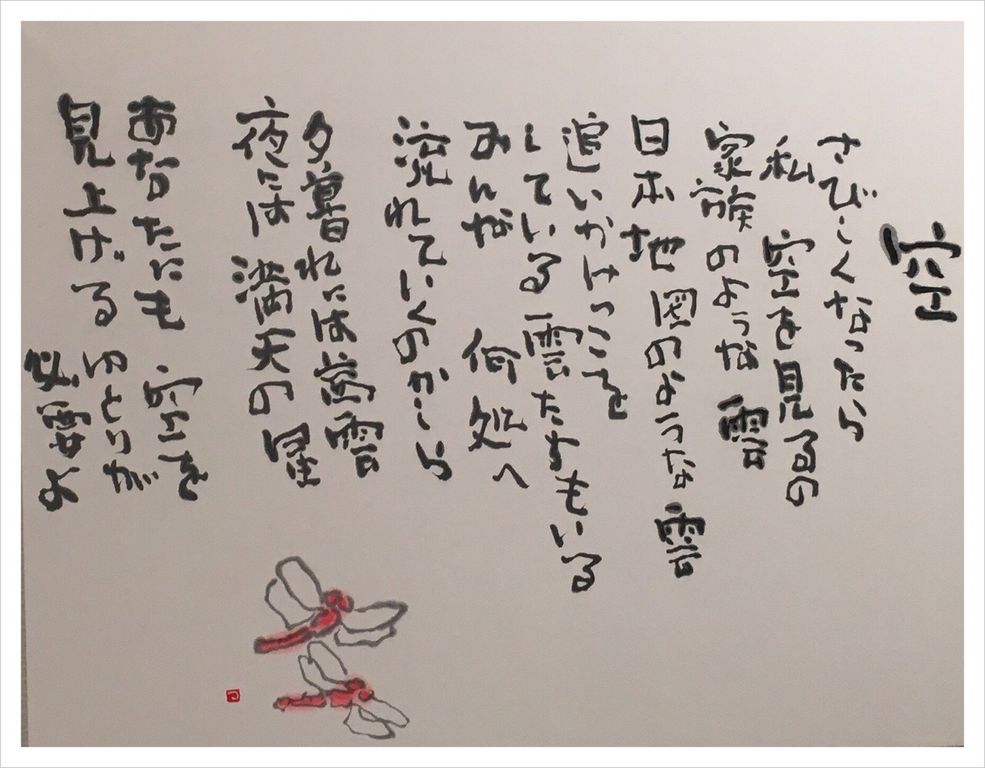 空
さびしくなったら
私 空を見るの
家族のような雲
日本地図のような雲
追いかけっこを
している雲たちもいる
みんな 何処へ
流れていくのかしら
夕暮れには茜雲
夜には満天の星
あなたにも 空を
見上げる ゆとりが
必要よ